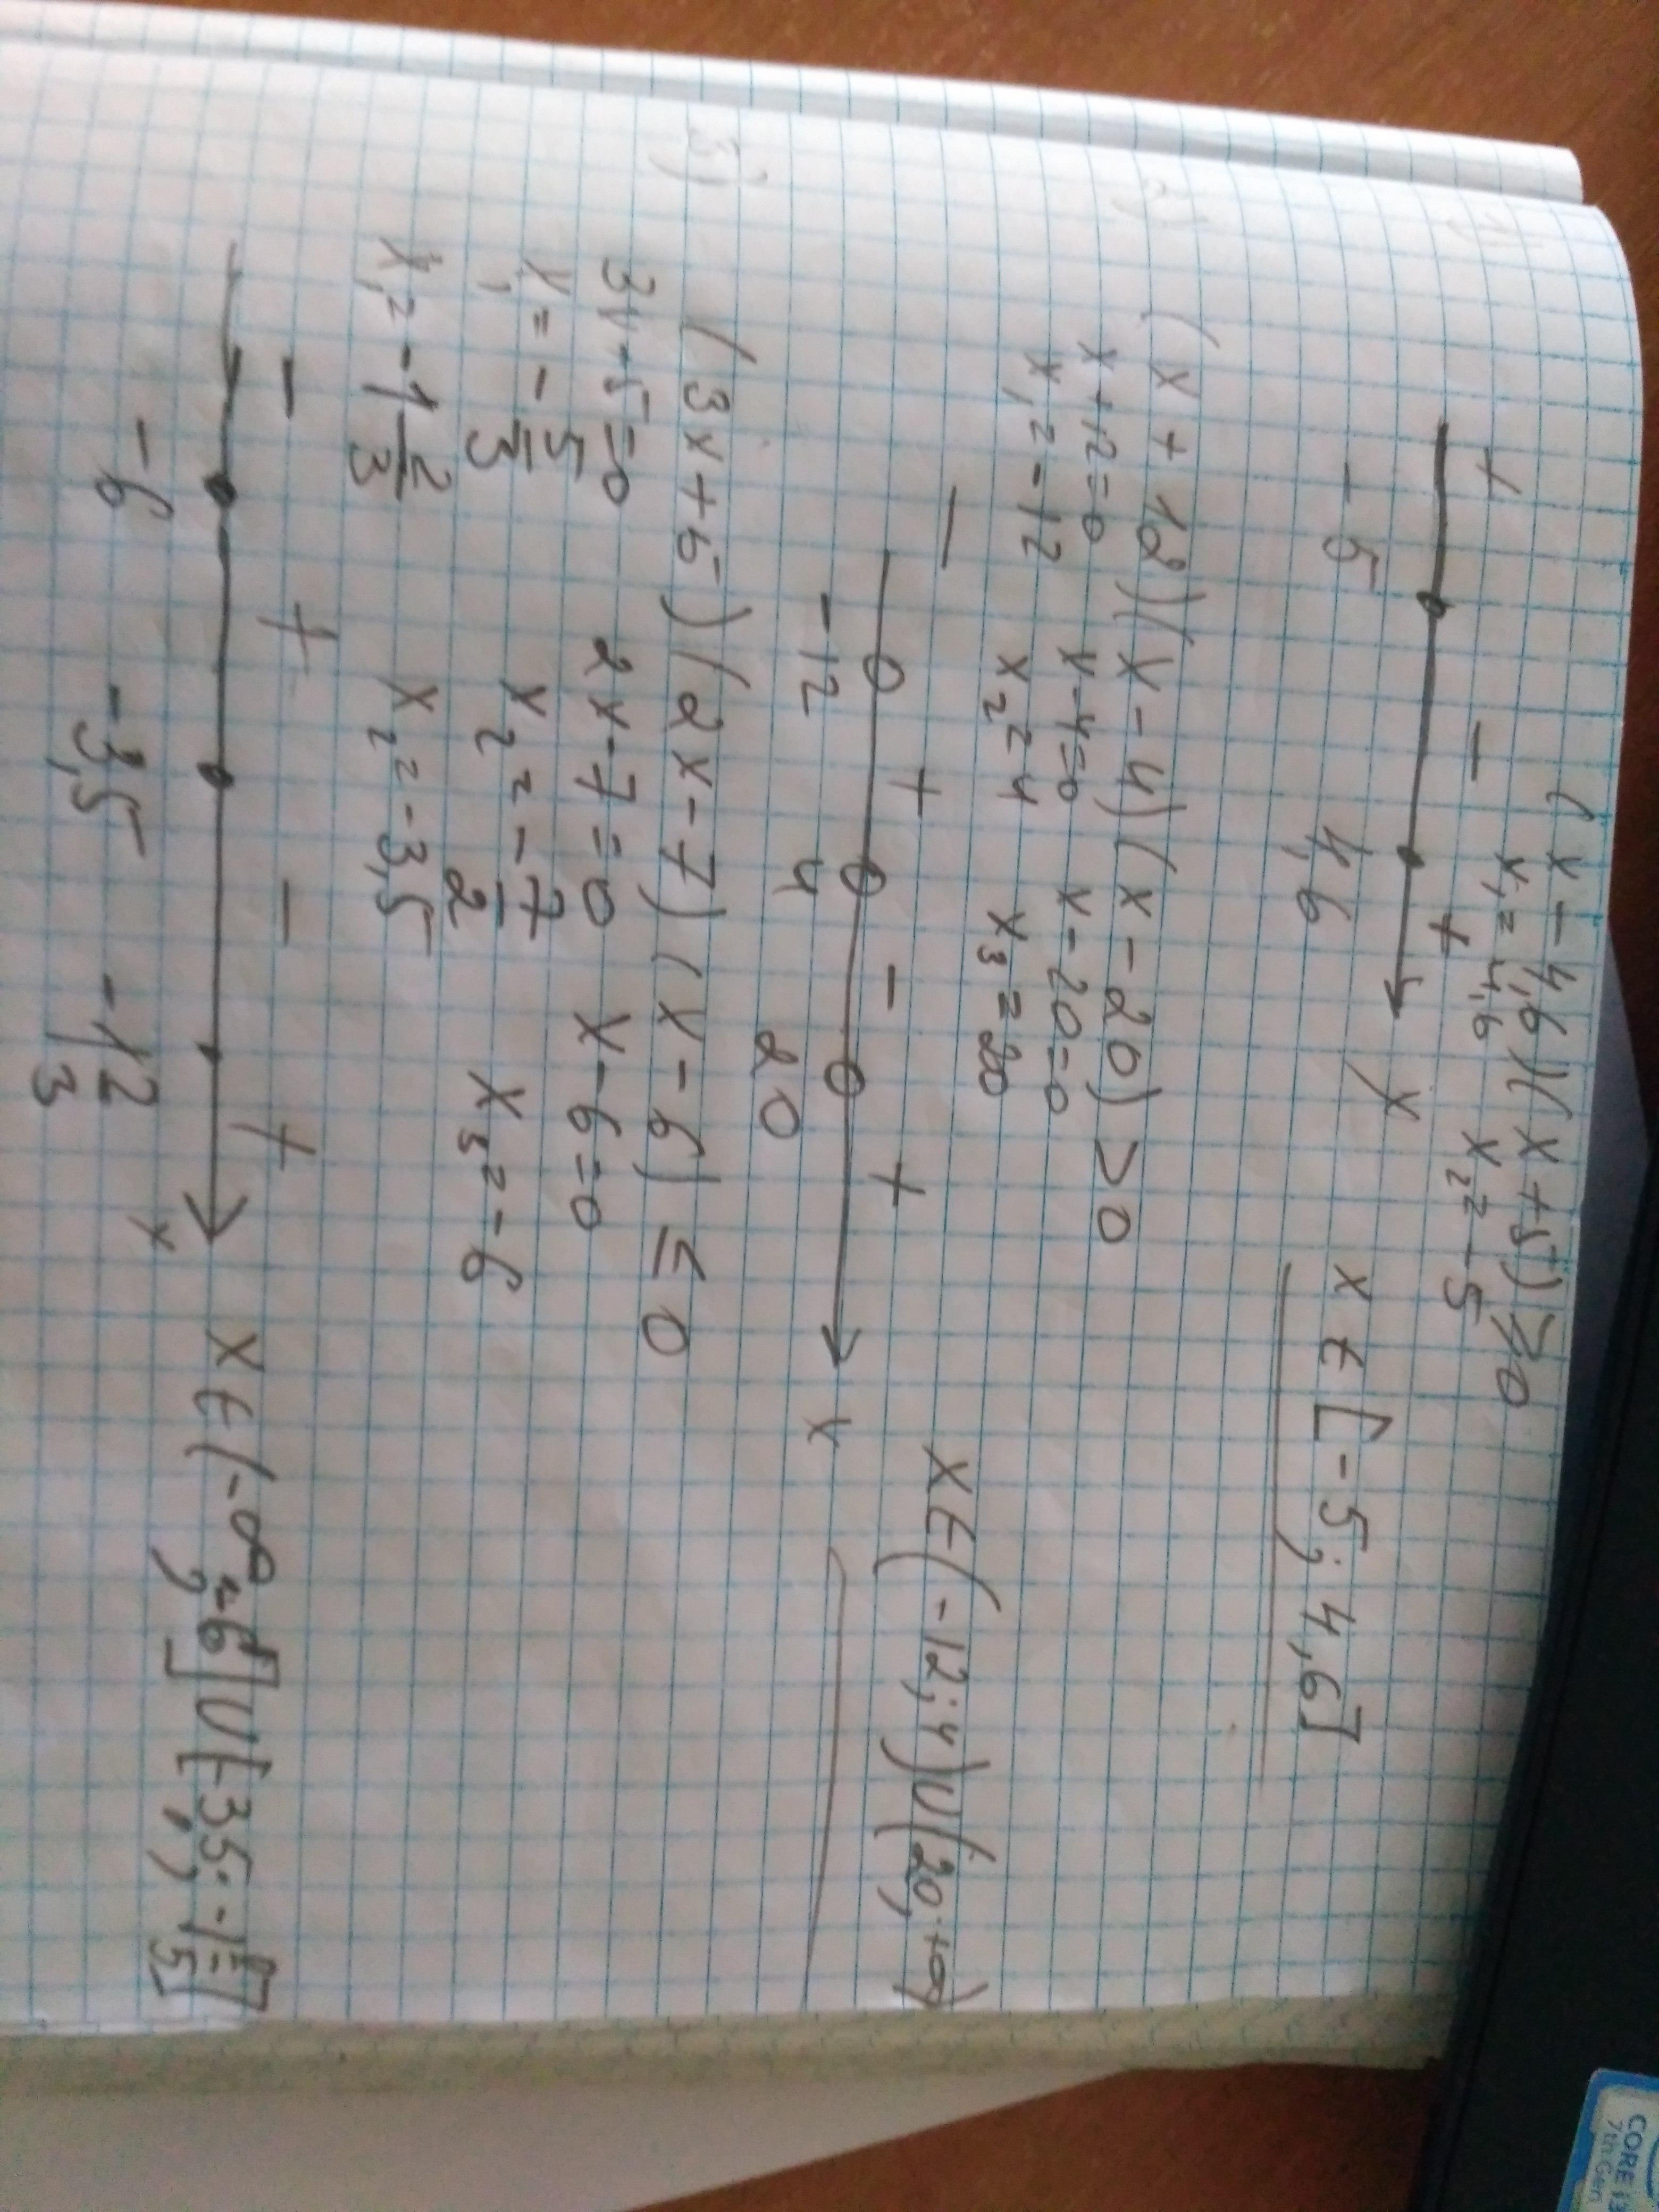 1)
(x - 4,6)(x + 5) ≥ 0
x₁ = 4,6 x₂ = -5
+ - +
-5 4,6 x
x ∈ [-5; 4,6]
2)
(x + 12)(x - 4)(x - 20) > 0
x + 12 = 0 x - 4 = 0 x - 20 = 0
x₁ = -12 x₂ = 4 x₃ = 20
- + - +
-12 4 20 x
x ∈ (-12; 4) ∪ (20; +∞)
3)
(3x + 5)(2x - 7)(x - 6) ≤ 0
3x + 5 = 0 2x - 7 = 0 x - 6 = 0
x₁ = -5/3 x₂ = -7/2 x₃ = -6
x₁ = -1 2/3 x₂ = -3,5
- + - +
-6 -3,5 -1 2/3 x
x ∈ (-∞; -6] ∪ [-3,5; -1
CORE i3
7th Gen